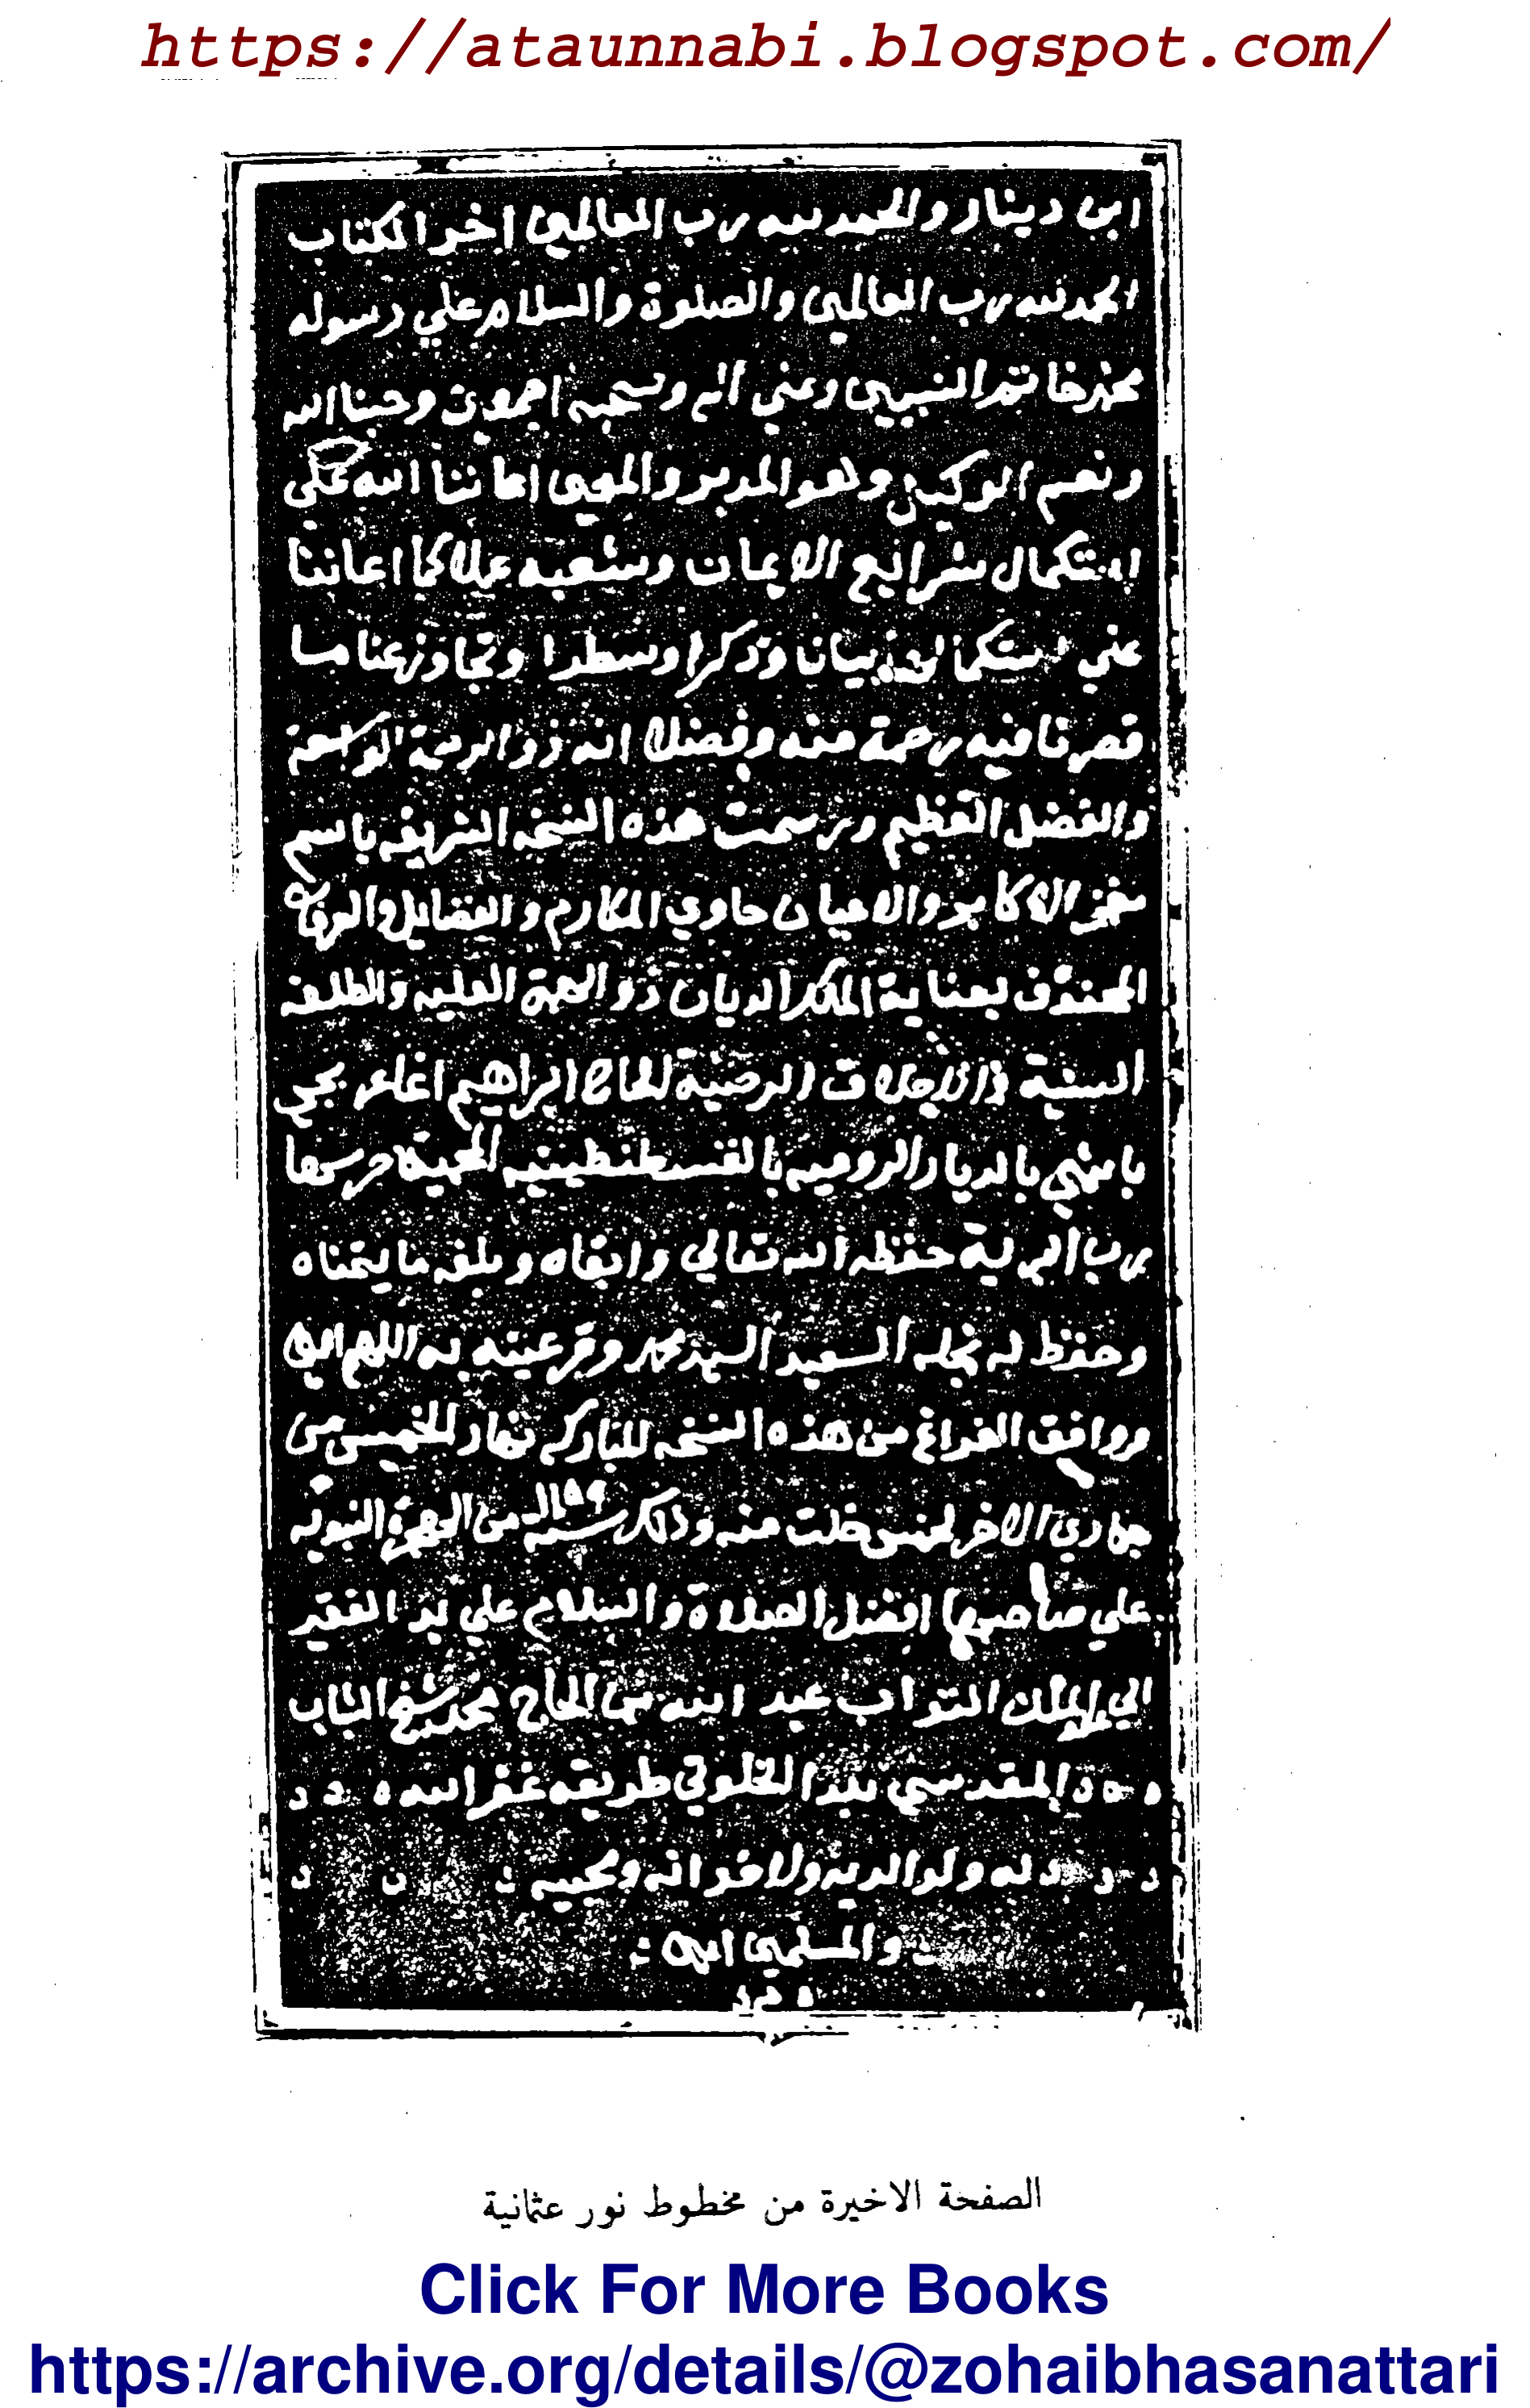 https://ataunnabi.blogspot.com/
ابن دينار والحمد لله رب العالمين اخر الكتاب
الحمد لله رب العالمين والصلوة والسلام علي رسوله
محمد خاتم النبيين وعلي اله وصحبه اجمعين وحسبنا الله
ونعم الوكيل وهو المدبر والمعين اعاننا الله علي
استكمال شرايع الايمان وشعبه عملا كما اعاننا
علي استكمالها بيانا وذكرا وسطرا وتجاوز عنا ما
قصرنا فيه رحمة منه وفضلا انه ذو الرحمة الواسعة
والفضل العظيم ورسمت هذه النسخه الشريفه باسم
فخر الاكابر والاعيان حاوي المكارم والفضايل والعرفان
المحفوف بعناية الملك الديان ذو الهمة العليه والطلعه
السنية والاخلاق الرضية الحاج ابراهيم اغا
باشي بالديار الروميه بالقسطنطينيه المحمية حرسها
رب البرية حفظه الله تعالي وابقاه وبلغه ما يتمناه
وحفظ له نجله السعيد السيد محمد وقر عينه به اللهم امين
ووافق الفراغ من هذه النسخه المباركه نهار الخميس من
جمادي الاخر لخمس خلت منه وذلك سنه ١١٥٩ من الهجرة النبويه
علي صاحبها افضل الصلاة والسلام علي يد الفقير
الي الملك التواب عبد الله بن الحاج محمد الشاب
المقدسي بلدا الخلوتي طريقه غفر الله
له ولوالديه ولاخوانه ومحبيه
والمسلمين امين
الصفحة الاخيرة من مخطوط نور عثمانية
Click For More Books
https://archive.org/details/@zohaibhasanattari